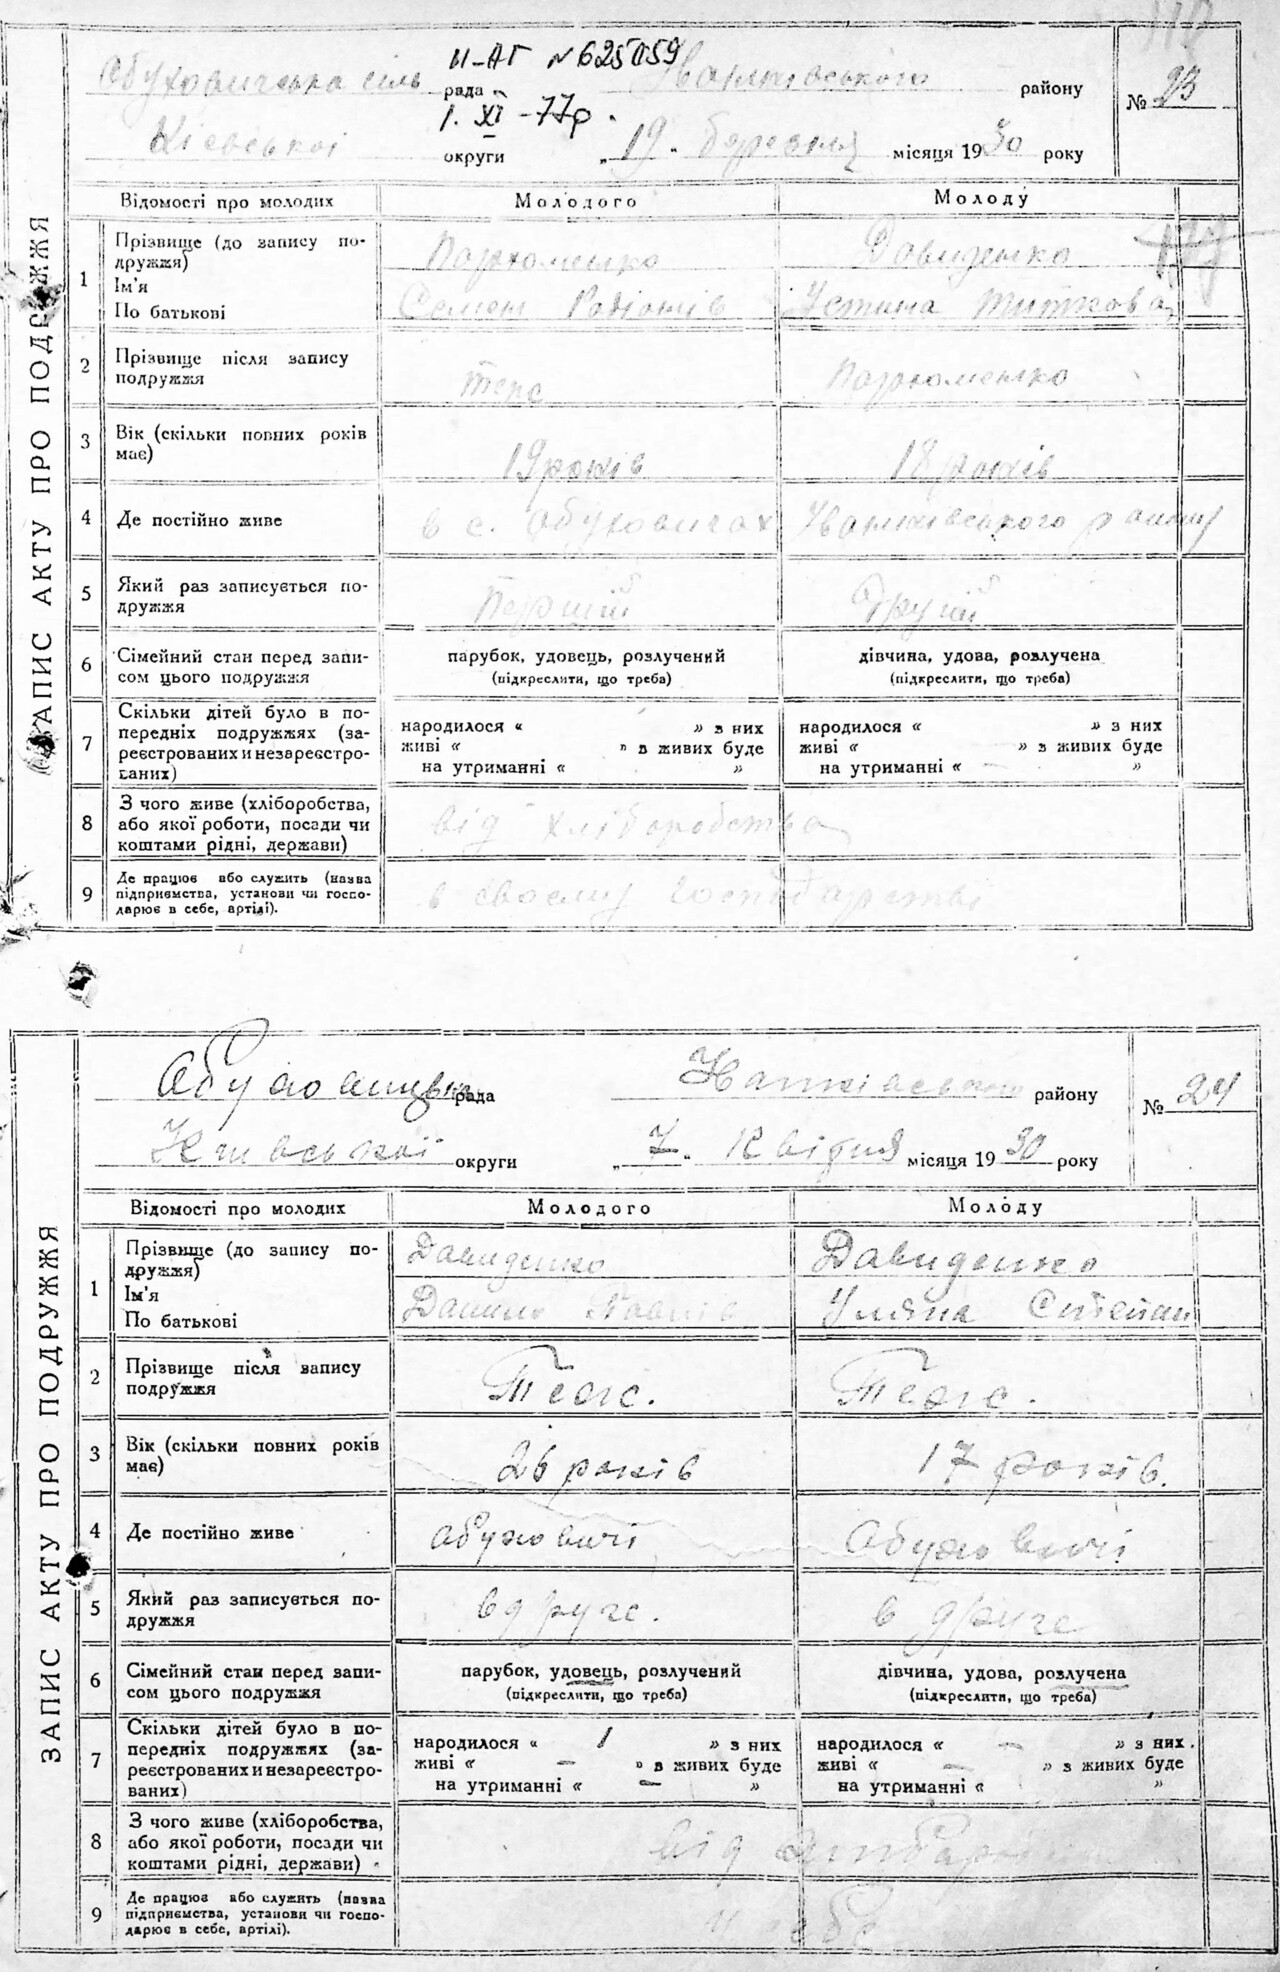 ЗАПИС АКТУ ПРО ПОДРУЖЖЯ
ІІ-АГ №625059
Обуховичська сіль рада Іванківського району № 23
1. XI -77р.
Кієвської округи „19" березня місяця 1930 року
Відомості про молодих Молодого Молоду
1 Прізвище (до запису по-
дружжя) Пархоменко Давиденко
Ім'я
По батькові Семен Родіонів Устина Титкова
2 Прізвище після запису
подружжя теж Пархоменко
3 Вік (скільки повних років
має) 19 років 18 років
4 Де постійно живе в с. Обуховичах Іванківського району
5 Який раз записується по-
дружжя Перший Другий
6 Сімейний стан перед запи-
сом цього подружжя
парубок, удовець, розлучений
(підкреслити, що треба)
дівчина, удова, розлучена
(підкреслити, що треба)
7 Скільки дітей було в по-
передніх подружжях (за-
реєстрованих и незареєстро-
ваних)
народилося « » з них
живі « » з живих буде
на утриманні « »
народилося « » з них
живі « » з живих буде
на утриманні « — »
8 З чого живе (хліборобства,
або якої роботи, посади чи
коштами рідні, держави) від хліборобства
9 Де працює або служить (назва
підприємства, установи чи госпо-
дарює в себе, артілі). в своєму господарстві
ЗАПИС АКТУ ПРО ПОДРУЖЖЯ
рада району № 24
Київської округи „7" Квітня місяця 1930 року
Відомості про молодих Молодого Молоду
1 Прізвище (до запису по-
дружжя) Давиденко Давиденко
Ім'я
По батькові Данило Павлів Уляна Степан
2 Прізвище після запису
подружжя Теж. Теж.
3 Вік (скільки повних років
має) 26 років 17 років.
4 Де постійно живе Обуховичі Обуховичі
5 Який раз записується по-
дружжя вдруге. в друге
6 Сімейний стан перед запи-
сом цього подружжя
парубок, удовець, розлучений
(підкреслити, що треба)
дівчина, удова, розлучена
(підкреслити, що треба)
7 Скільки дітей було в по-
передніх подружжях (за-
реєстрованих и незареєстро-
ваних)
народилося « 1 » з них
живі « — » з живих буде
на утриманні « — »
народилося « — » з них.
живі « — » з живих буде
на утриманні « »
8 З чого живе (хліборобства,
або якої роботи, посади чи
коштами рідні, держави) від
9 Де працює або служить (назва
підприємства, установи чи госпо-
дарює в себе, артілі). у себе